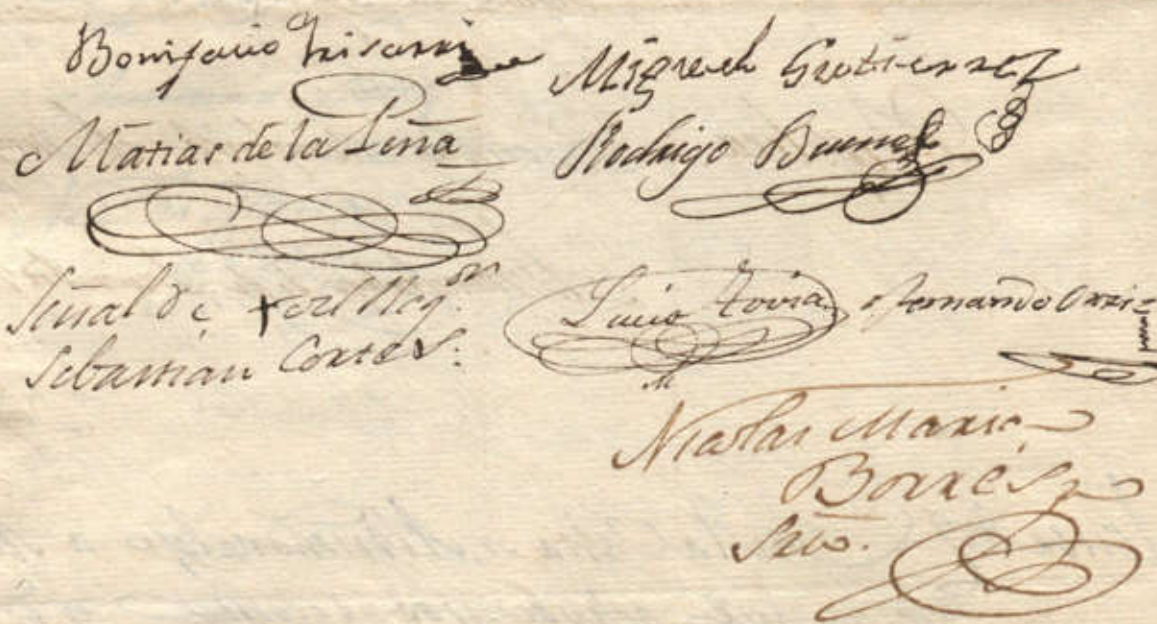 Bonifacio Irisarri
Miguel Gutierrez
Matias de la Peña
Rodrigo
Señal de + del Reg.or
Sebastian Cortes.
Lucio
Fernando
Nicolas Maria
Borres
Srio.